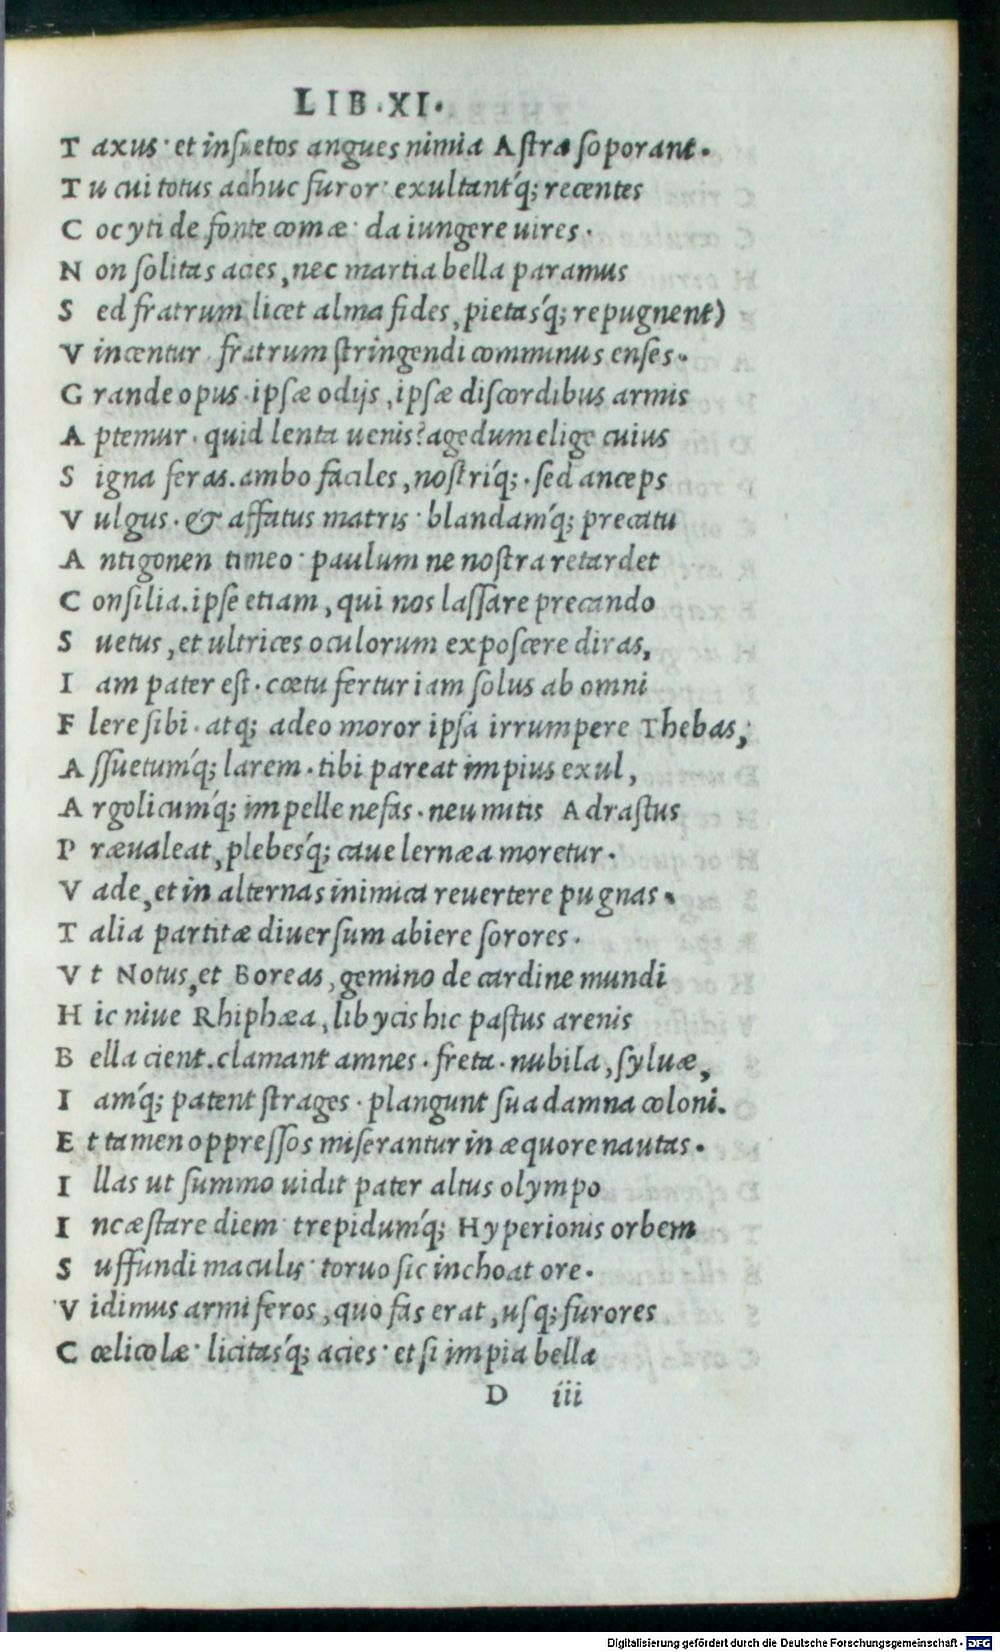 LIB.XI.
T axus· et insuetos angues nimia Astra soporant.
T u cui totus adhuc furor· exultant'q; recentes
C ocyti de fonte comæ· da iungere uires.
N on solitas acies, nec martia bella paramus
S ed fratrum licet alma fides, pietas'q; repugnent)
V incentur· fratrum stringendi comminus enses.
G rande opus· ipsæ odijs, ipsæ discordibus armis
A ptemur· quid lenta uenis? agedum elige cuius
S igna feras. ambo faciles, nostri'q;· sed anceps
V ulgus· & affatus matris· blandam'q; precatu
A ntigonen timeo· paulum ne nostra retardet
C onsilia. ipse etiam, qui nos lassare precando
S uetus, et ultrices oculorum exposcere diras,
I am pater est· cœtu fertur iam solus ab omni
F lere sibi· atq; adeo moror ipsa irrumpere Thebas,
A ssuetum'q; larem· tibi pareat impius exul,
A rgolicum'q; impelle nefas· neu mitis Adrastus
P ræualeat, plebes'q; caue lernæa moretur.
V ade, et in alternas inimica reuertere pugnas.
T alia partitæ diuersum abiere sorores.
V t Notus, et Boreas, gemino de cardine mundi
H ic niue Rhiphæa, libycis hic pastus arenis
B ella cient. clamant amnes· freta· nubila, syluæ,
I am'q; patent strages· plangunt sua damna coloni.
E t tamen oppressos miserantur in æquore nautas.
I llas ut summo uidit pater altus olympo
I ncæstare diem· trepidum'q; Hyperionis orbem
S uffundi maculis· toruo sic inchoat ore.
V idimus armiferos, quo fas erat, usq; furores
C œlicolæ· licitas'q; acies· et si impia bella
D iii
Digitalisierung gefördert durch die Deutsche Forschungsgemeinschaft · DFG